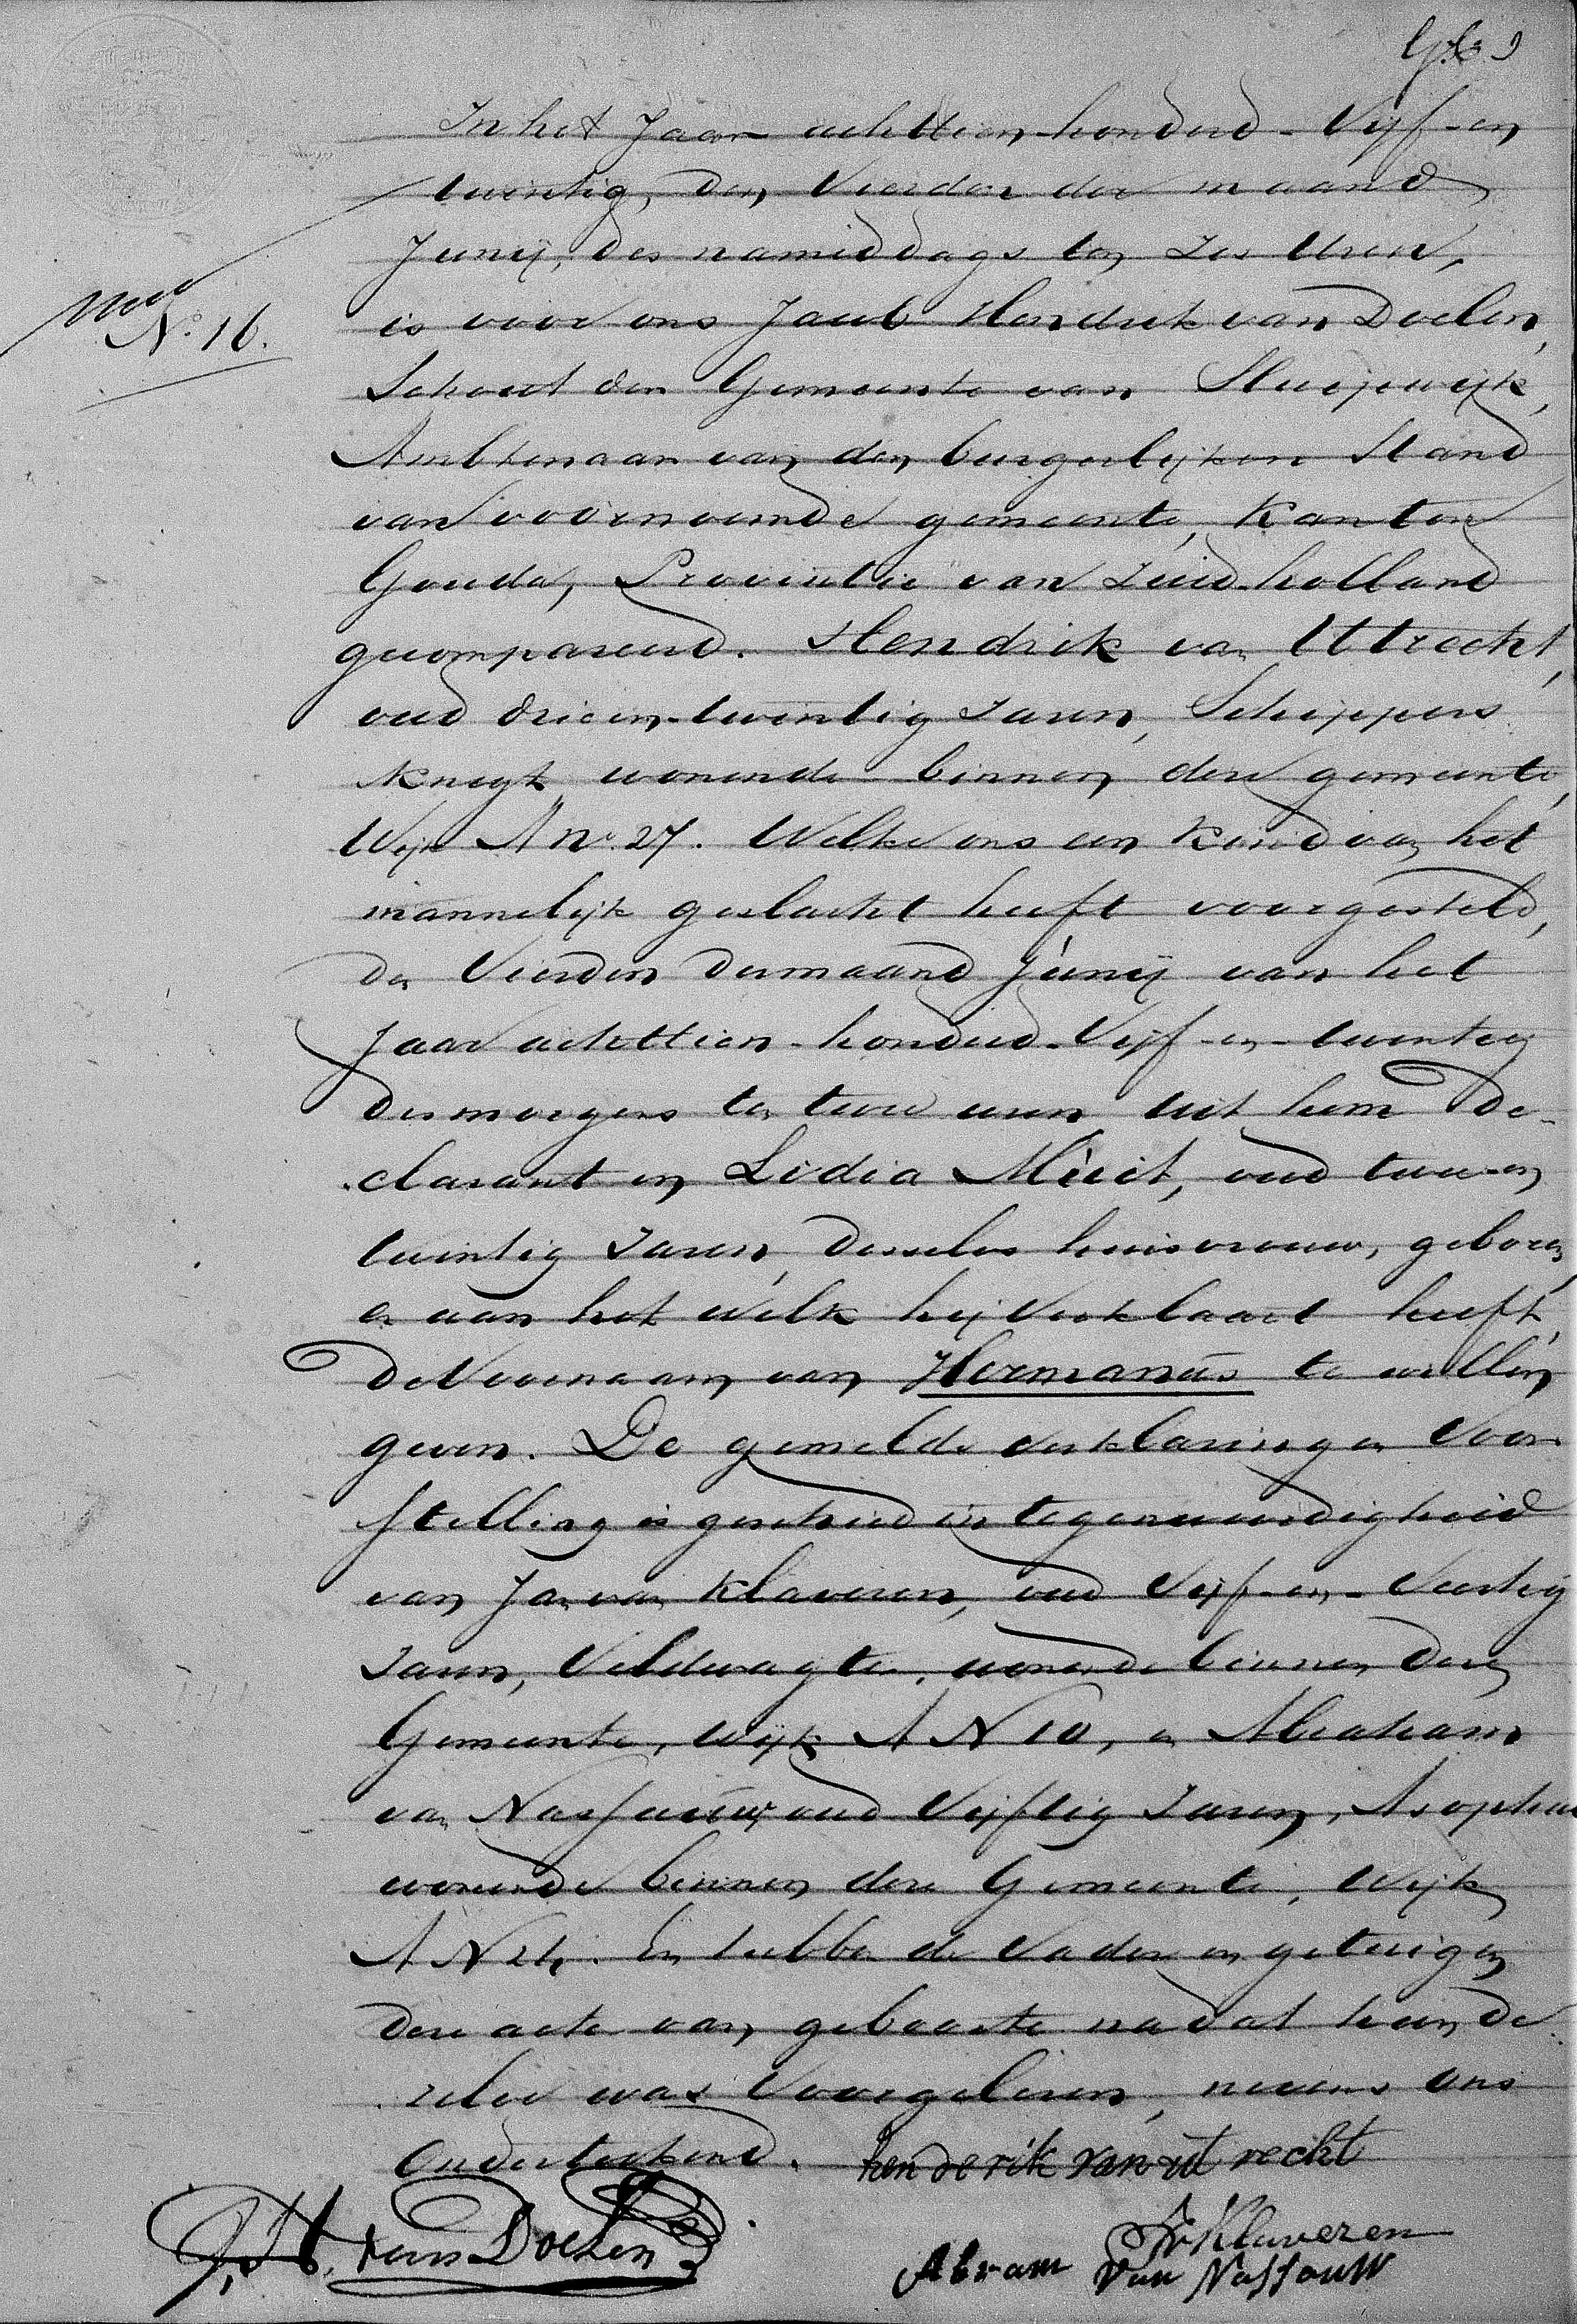 In het Jaar achttien-honderd-Vijf-en
twintig, den Vierden der maand
Junij, des namiddags ten Zes Uren,
N.o 16.
is voor ons Jacob Hendrik van Doelen,
Schout der Gemeente van Sluipwijk,
Ambtenaar van den burgerlijken Stand
van voornoemde gemeente, Kanton
Gouda, Provintie van Zuid-holland
gecompareerd. Hendrik van Uttrecht,
oud drieen-twintig Jaren, Schippers
knegt wonende binnen deze gemeente,
Wijk A No. 27. Welke ons een Kind van het
mannelijk geslacht heeft voorgesteld,
den Vierden dermaand Junij van het
Jaar achttien-honderd-Vijf-en-twintig
desmorgens ten twee uren uit hem De-
clarant en Lidia Muit, oud twee-en
twintig Jaren, deszelvs huisvrouw, geboren,
en aan het welk hij verklaard heeft,
de Voornaam van Hermanus te willen
geven. De gemelde verklaring en Voor
stelling is geschied in tegenwoordigheid
van Jan van Klaveren, oud Vijf-en-Veertig
Jaren, Veldwagter, wonende binnen deze
Gemeente, Wijk A N 10, en Abraham
van Nassauw, oud Vijftig Jaren,
wonende binnen deze Gemeente, Wijk
A N 24. En hebben de Vader en getuigen
deze acte van geboorte nadat hun de
zelve was Voorgelezen, nevens ons
Onderteekend. henderik van ut recht
J. H. van Doelen
JvKlaveren
Abram Van Nassouw